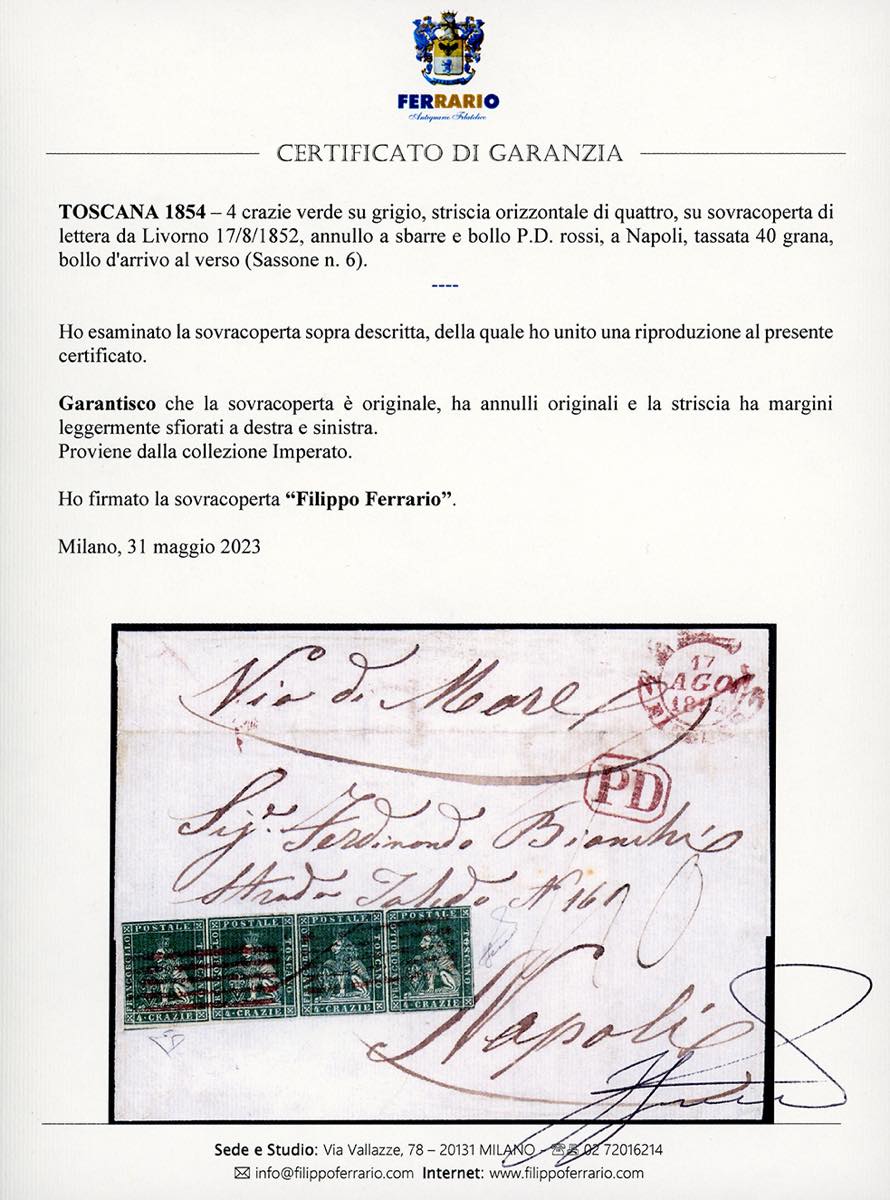 FERRARIO
Antiquario Filatelico
CERTIFICATO DI GARANZIA
TOSCANA 1854 – 4 crazie verde su grigio, striscia orizzontale di quattro, su sovracoperta di
lettera da Livorno 17/8/1852, annullo a sbarre e bollo P.D. rossi, a Napoli, tassata 40 grana,
bollo d'arrivo al verso (Sassone n. 6).
----
Ho esaminato la sovracoperta sopra descritta, della quale ho unito una riproduzione al presente
certificato.
Garantisco che la sovracoperta è originale, ha annulli originali e la striscia ha margini
leggermente sfiorati a destra e sinistra.
Proviene dalla collezione Imperato.
Ho firmato la sovracoperta “Filippo Ferrario”.
Milano, 31 maggio 2023
Via di Mare
17
AGO
PD
Sigr. Ferdinando Bianchi
Strada Toledo No 160
Napoli
FRANCOBOLLO POSTALE TOSCANO 4·CRAZIE
FRANCOBOLLO POSTALE TOSCANO 4·CRAZIE
FRANCOBOLLO POSTALE TOSCANO 4·CRAZIE
FRANCOBOLLO POSTALE TOSCANO 4·CRAZIE
Sede e Studio: Via Vallazze, 78 – 20131 MILANO - ☎ 02 72016214
✉ info@filippoferrario.com Internet: www.filippoferrario.com